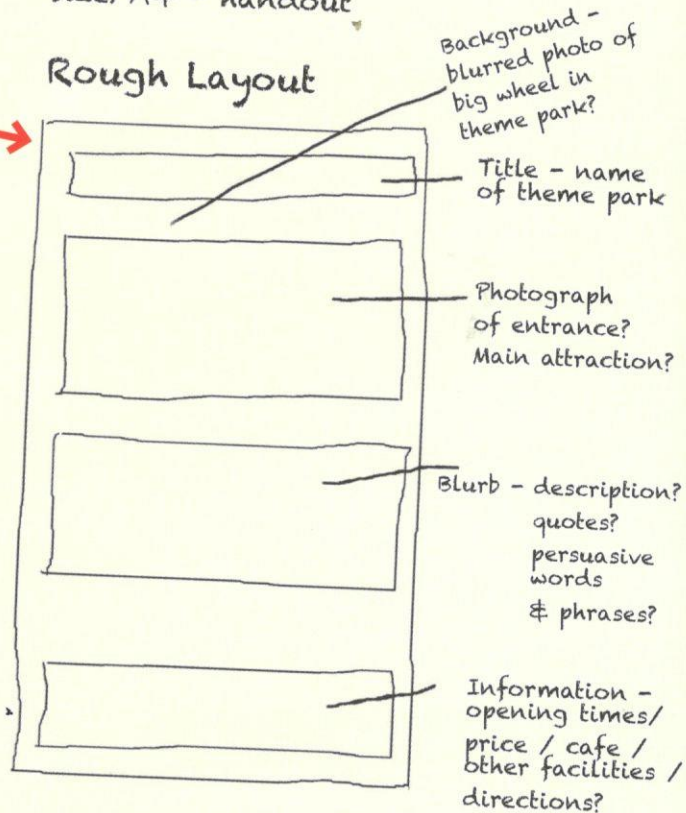 handout
Rough Layout
Background -
blurred photo of
big wheel in
theme park?
Title - name
of theme park
Photograph
of entrance?
Main attraction?
Blurb - description?
quotes?
persuasive
words
& phrases?
Information -
opening times/
price / cafe /
other facilities /
directions?